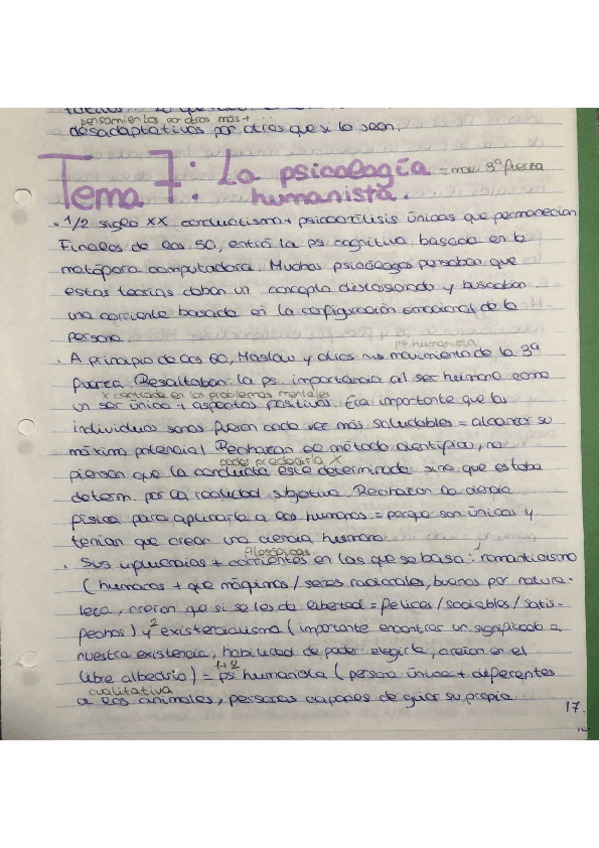 pensamientos por otros más + ...
desadaptativos por otros que si lo sean.
Tema 7: La psicología = mov. 3ª fuerza
humanista.
• 1/2 siglo XX conductismo + psicoanálisis únicas que permanecían
Finales de los 50, entró la ps cognitiva basada en la
metáfora computadora. Muchos psicólogos pensaban que
estas teorías daban un concepto distorsionado y buscaban
una corriente basada en la configuración emocional de la
persona.
ps humanista
• A principio de los 60, Maslow y otros mov movimiento de la 3ª
fuerza. Resaltaban la ps. importancia al ser humano como
X centrada en los problemas mentales
un ser único + aspectos positivos. Era importante que los
individuos sanos fueran cada vez más saludables = alcanzar su
máximo potencial. Rechazan el método científico, no
poder predecirla X
piensan que la conducta esté determinada sino que estaba
determ. por la realidad subjetiva. Rechazan la ciencia
física para aplicarla a los humanos = porque son únicos y
tenían que crear una ciencia humana
filosóficas
• Sus influencias + corrientes en las que se basa: 1 romanticismo
(humanos + que máquinas / seres racionales, buenos por natura-
leza, creían que si se les da libertad = felices / sociables / satis-
fechos) y 2 existencialismo (importante encontrar un significado a
nuestra existencia, habilidad de poder elegirla, creían en el
1+2
libre albedrío) = ps humanista (persona única + diferentes
cualitativa
a los animales, personas capaces de guiar su propia
17.